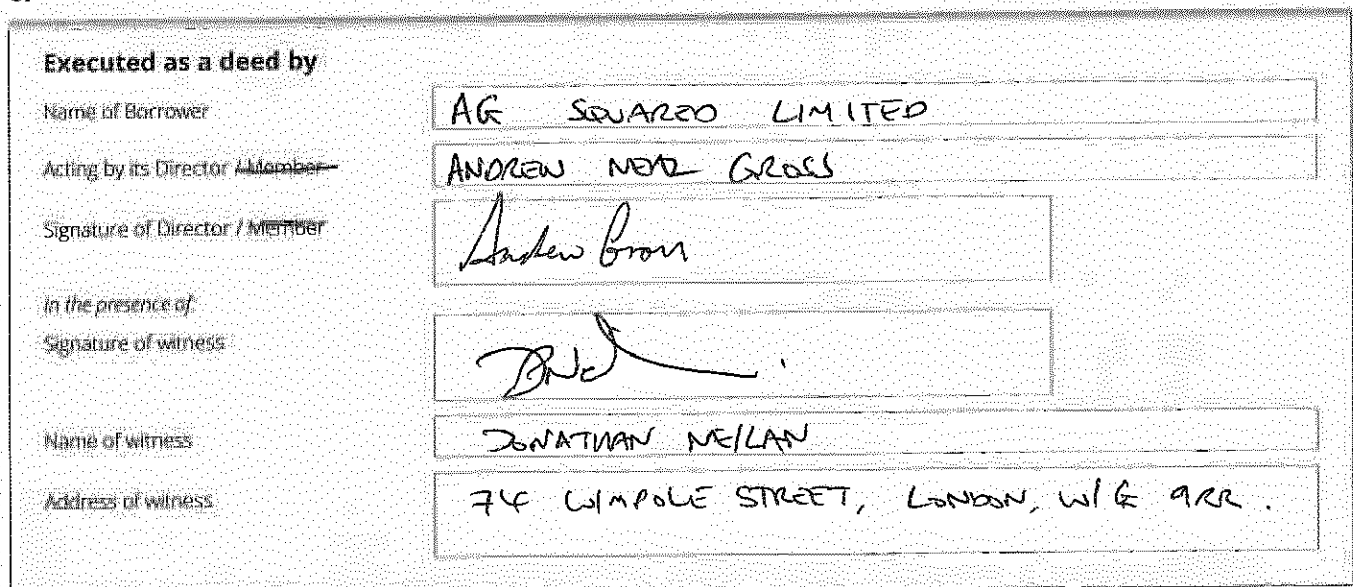 Executed as a deed by
Name of Borrower AG SQUARED LIMITED
Acting by its Director / Member ANDREW NEAL GROSS
Signature of Director / Member Andrew Gross
In the presence of:
Signature of witness
Name of witness JONATHAN NEILAN
Address of witness 74 WIMPOLE STREET, LONDON, W1G 9RR.